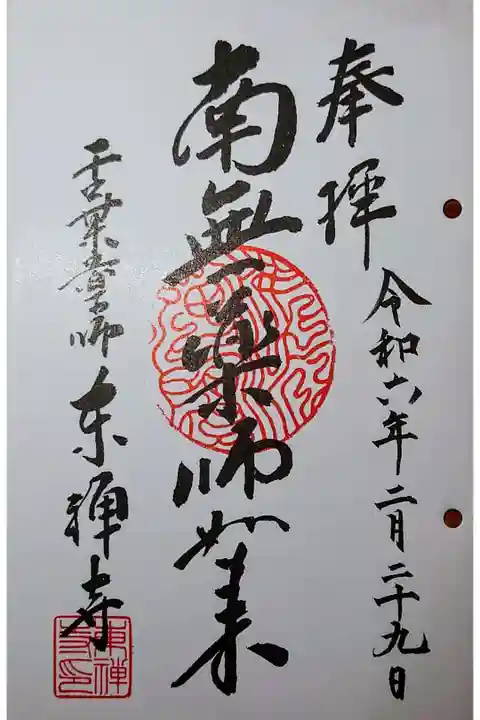 奉拝
令和六年二月二十九日
南無薬師如来
師 東禅寺
東禅寺印